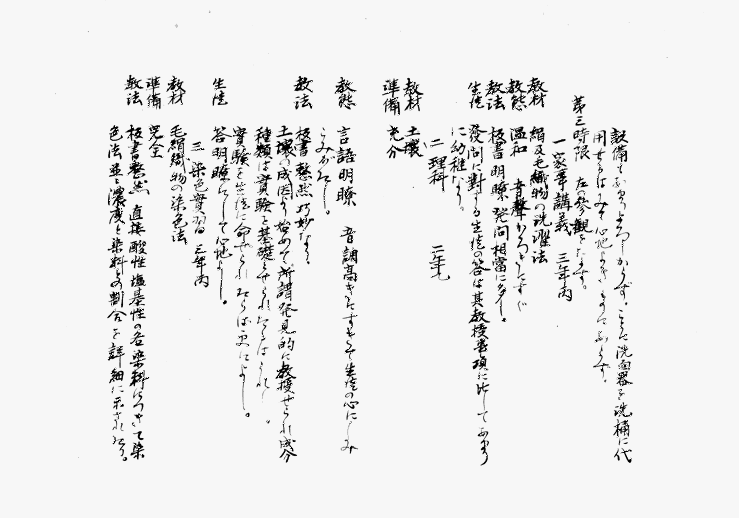 設備もあまりよろしからず、ことに洗面器を洗桶に代
用せるはみて心地よきものにあらず。
第三時限 左の参観をなす。
一 家事講義 三年内
教材 絹及毛織物の洗濯法
教態 温和 音聲ひくきにすぐ
教法 板書明瞭 発問相當に多し。
生徒 発問に對する生徒の答は其教授事項に比してあまり
に幼稚なり。
二 理科 二年
教材 土壌
準備 充分
教態 言語明瞭 音調高きにすぎて生徒の心にしみ
こみがたし。
教法 板書整然巧妙なり。
土壌の成因より始めて、所謂発見的に教授せられ成分
種類は實験を基礎とせられたるはうれし。
實験を生徒に命ぜられたらば更によし。
生徒 答明瞭にして心地よし。
三 染色實習 三年内
教材 毛絹織物の染色法
準備 完全
教法 板書整然 直接酸性塩基性の各染料につきて染
色法並に濃度と染料との割合を詳細に示されたり。